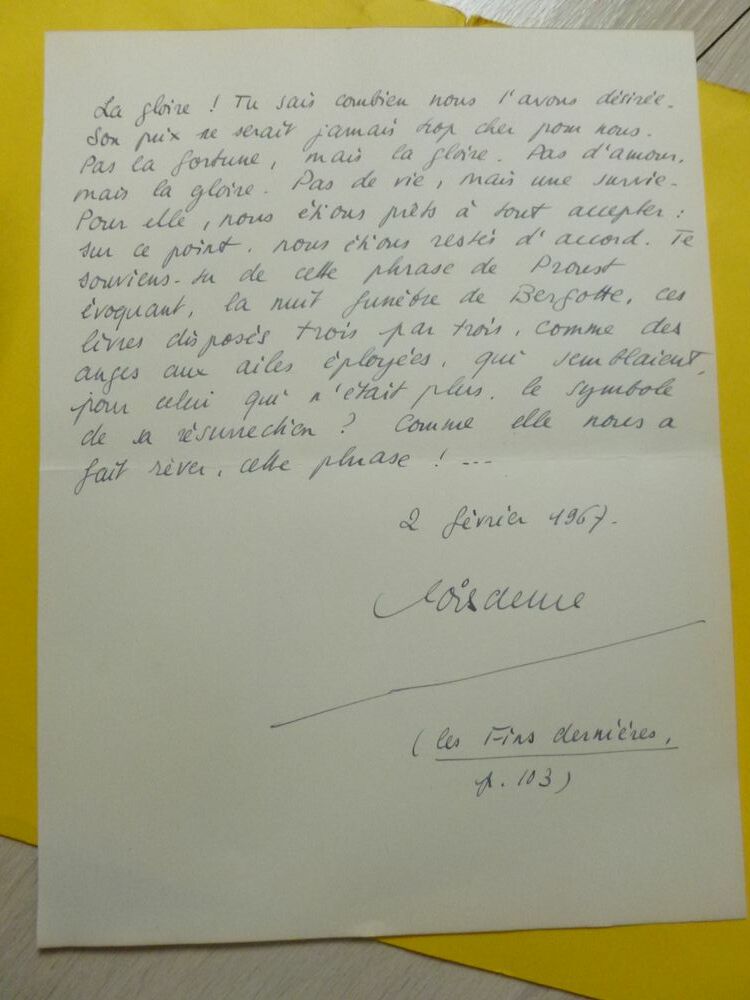 La gloire ! Tu sais combien nous l'avons désirée.
Son prix ne serait jamais trop cher pour nous.
Pas la fortune, mais la gloire. Pas d'amour,
mais la gloire. Pas de vie, mais une survie.
Pour elle, nous étions prêts à tout accepter :
sur ce point, nous étions restés d'accord. Te
souviens-tu de cette phrase de Proust
évoquant, la nuit funèbre de Bergotte, ces
livres disposés trois par trois, comme des
anges aux ailes éployées, qui semblaient,
pour celui qui n'était plus, le symbole
de sa résurrection ? Comme elle nous a
fait rêver, cette phrase ! ...
2 février 1967.
(les Fins dernières,
p. 103)